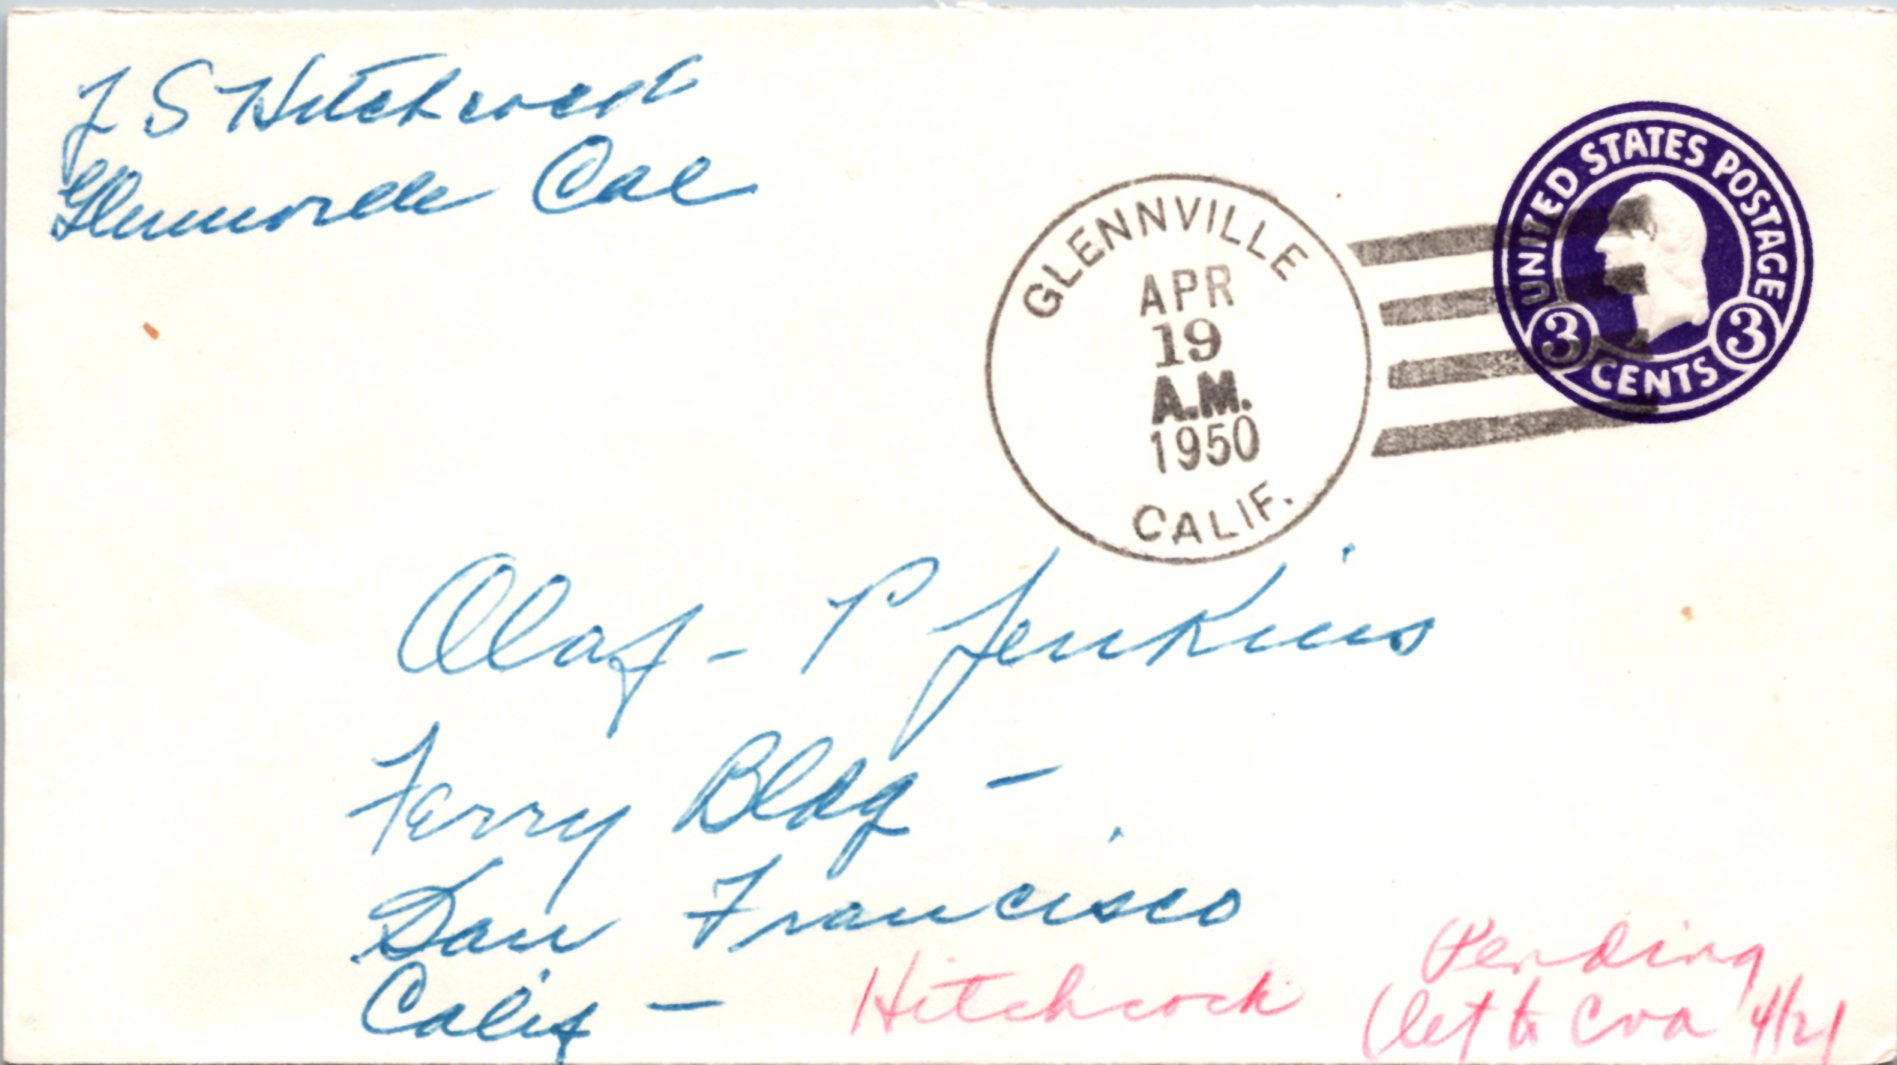 J S Hitchcock
Glennville Cal
GLENNVILLE
APR
19
A.M.
1950
CALIF.
UNITED STATES POSTAGE
3 CENTS 3
Olaf - P Jenkins
Ferry Bldg -
San Francisco
Calif -
Hitchcock
Pending
(let to CVA 4/21